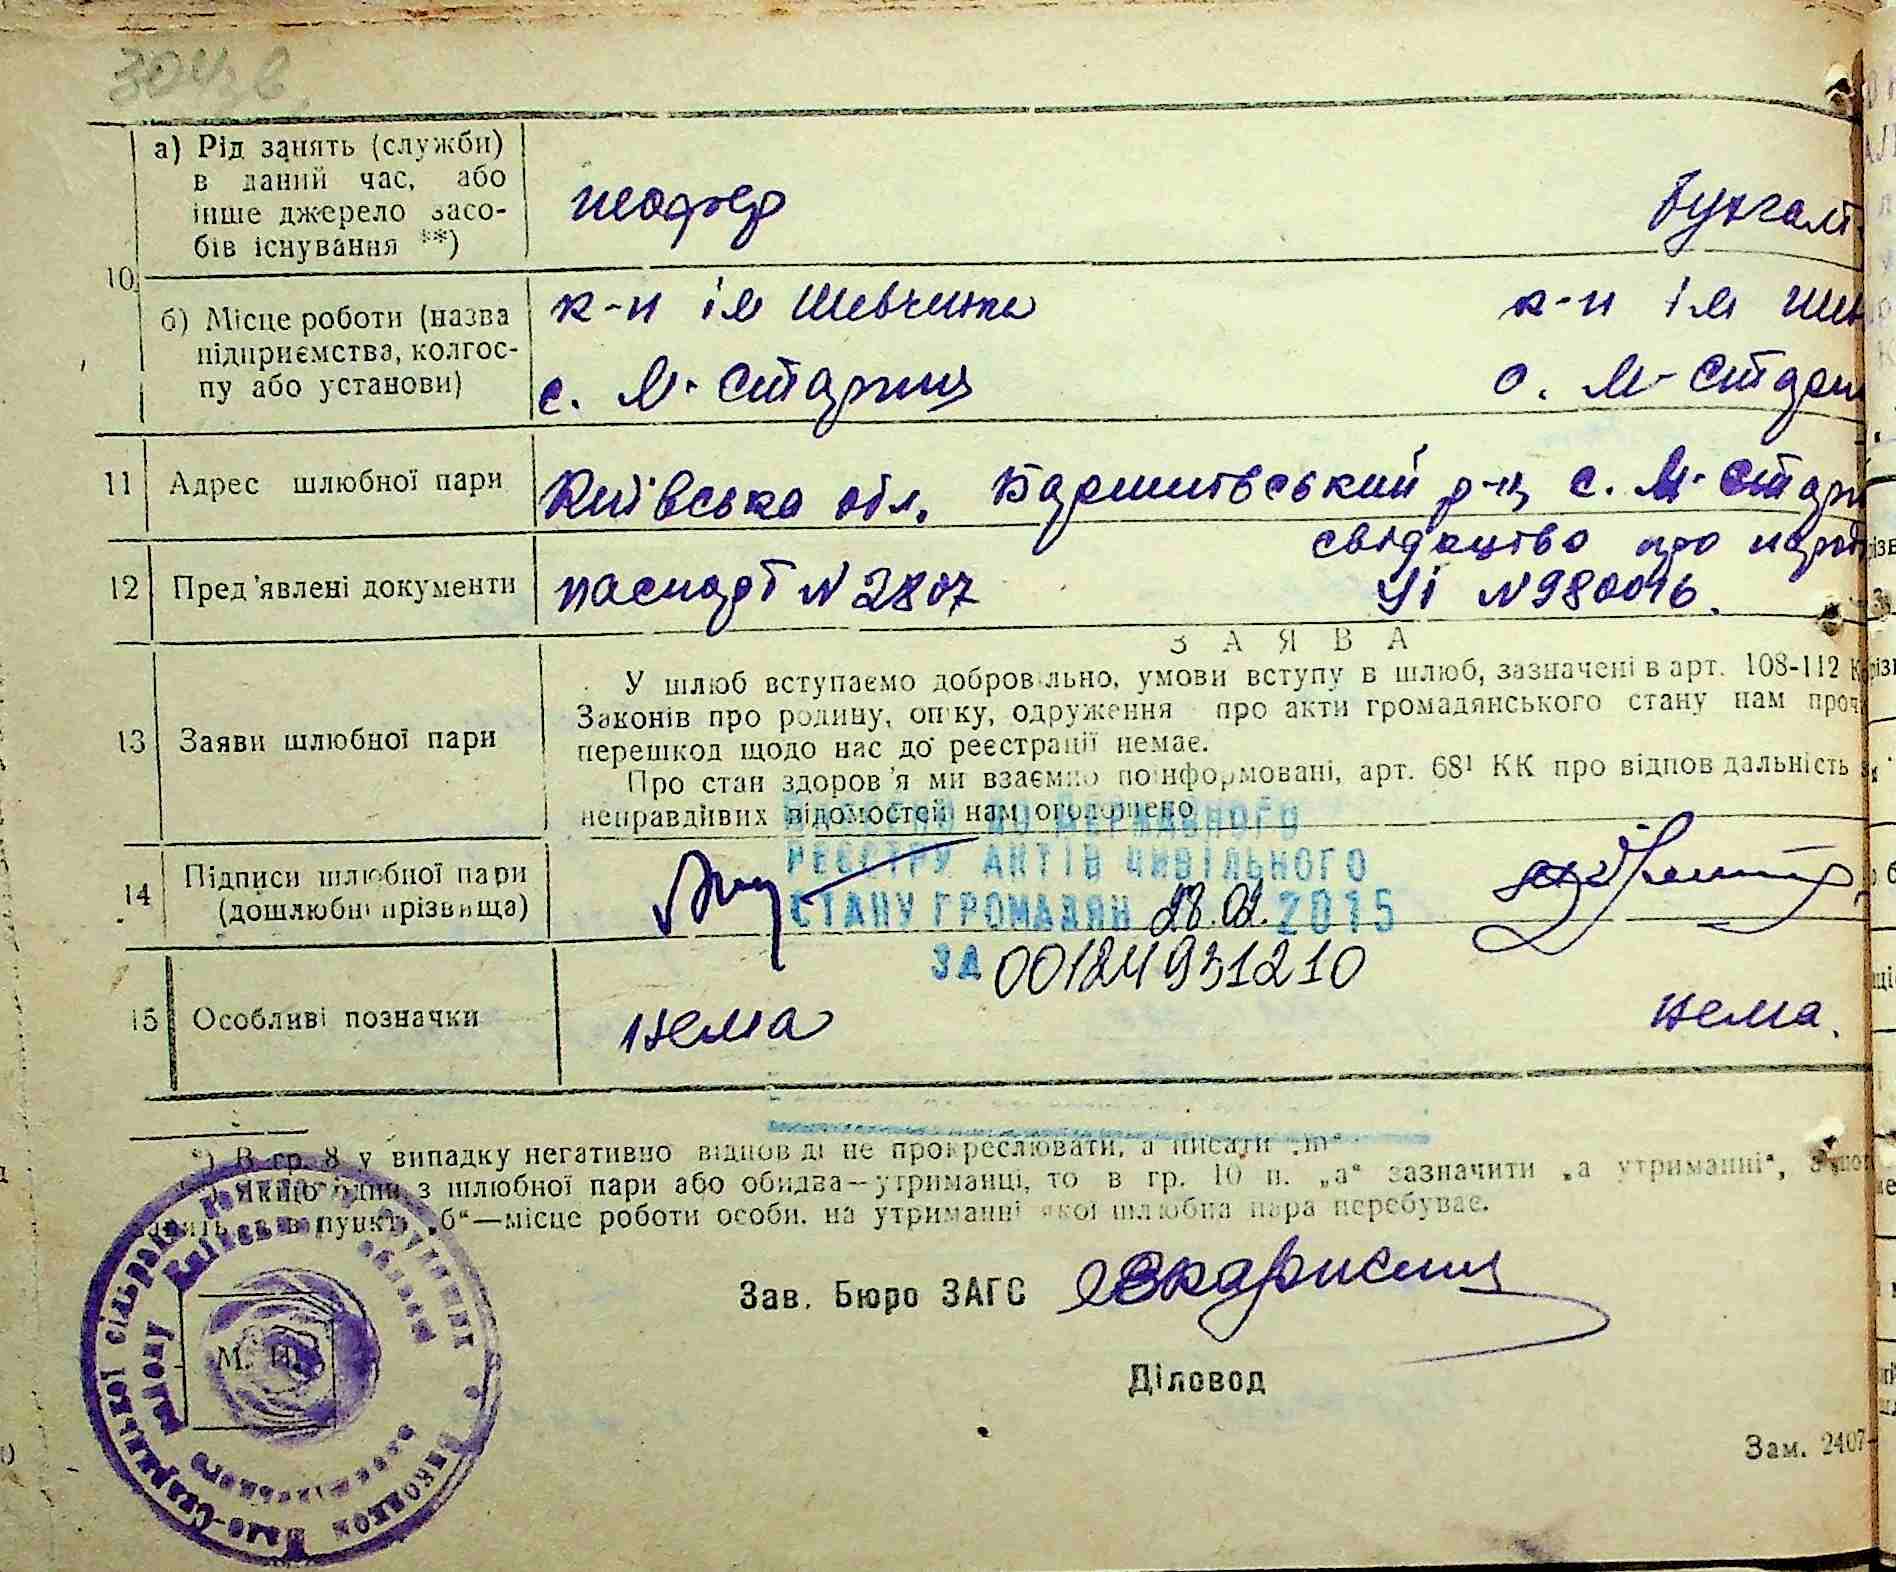 304зв
а) Рід занять (служби)
в даний час, або
інше джерело засо-
бів існування **)
шофер
бухгалт
10
б) Місце роботи (назва
підприємства, колгос-
пу або установи)
к-п ім Шевченка
с. М-Стариця
к-п ім Шев
с. М-Стари
11 Адрес шлюбної пари
Київська обл. Баришівський р-н с. М-Стари
12 Пред'явлені документи
паспорт N 2807
свідоцтво про народ
N 980016.
13 Заяви шлюбної пари
ЗАЯВА
У шлюб вступаємо добровільно, умови вступу в шлюб, зазначені в арт. 108-112 К
Законів про родину, опіку, одруження про акти громадянського стану нам проч
перешкод щодо нас до реєстрації немає.
Про стан здоров'я ми взаємно поінформовані, арт. 68¹ КК про відповідальність за
неправдивих відомостей нам оголошено
14 Підписи шлюбної пари
(дошлюбні прізвища)
ВНЕСЕНО ДО ДЕРЖАВНОГО
РЕЄСТРУ АКТІВ ЦИВІЛЬНОГО
СТАНУ ГРОМАДЯН 28.02.2015
ЗА 00124931210
15 Особливі позначки
нема
нема.
*) В гр. 8 у випадку негативно відповіді не прокреслювати, а писати „ні“
Якщо один з шлюбної пари або обидва—утриманці, то в гр. 10 п. „а“ зазначити „а утриманні“,
в пункті „б“—місце роботи особи, на утриманні якої шлюбна пара перебуває.
Зав. Бюро ЗАГС
Діловод
М. П.
Виконком Мало-Старицької сільради
району Київської області
Зам. 2407